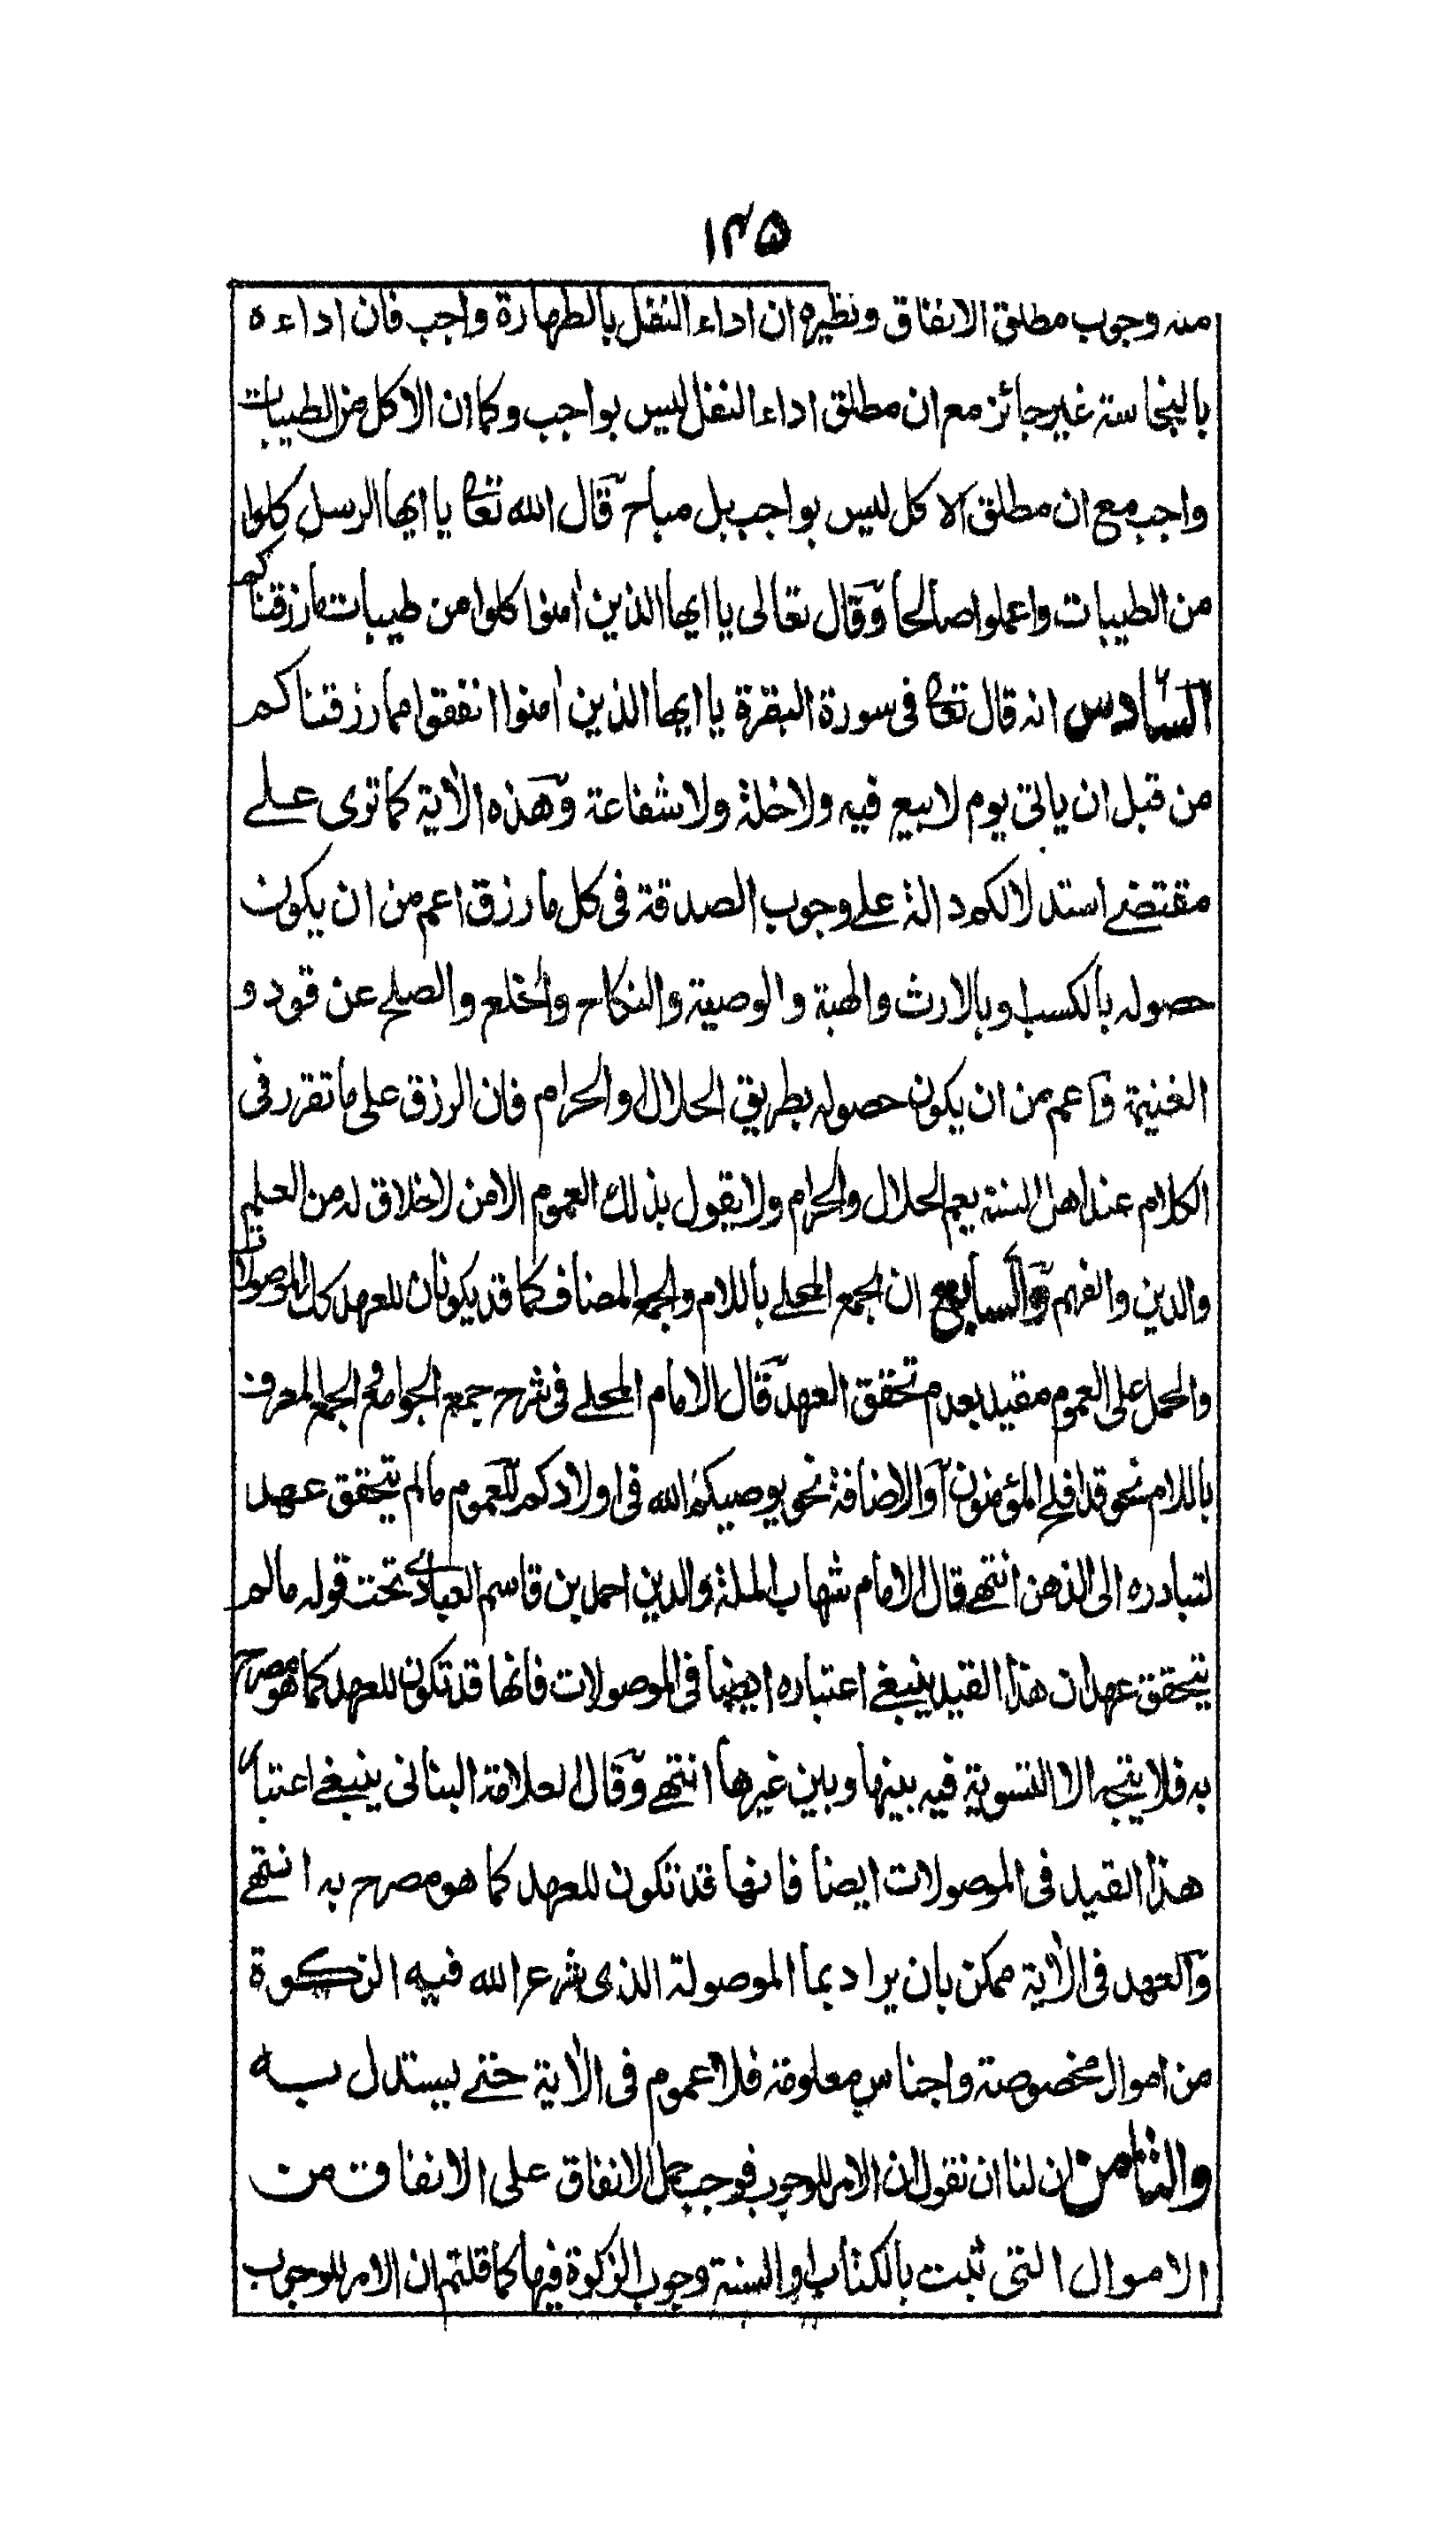 ۱۴۵
منه وجوب مطلق الانفاق ونظيره ان اداء النفل بالطهارة واجب فان اداءه
بالنجاسة غير جائز مع ان مطلق اداء النفل ليس بواجب وكما ان الاكل من الطيبات
واجب مع ان مطلق الاكل ليس بواجب بل مباح قال الله تعا يا ايها الرسل كلوا
من الطيبات واعملوا صالحا وقال تعالى يا ايها الذين اٰمنوا كلوا من طيبات ما رزقناكم
السادس انه قال تعا فى سورة البقرة يا ايها الذين اٰمنوا انفقوا مما رزقناكم
من قبل ان ياتى يوم لا بيع فيه ولا خلة ولا شفاعة وهذه الاٰية كما ترى على
مقتضے استدلالكم دالة على وجوب الصدقة فى كل ما رزق اعم من ان يكون
حصوله بالكسب وبالارث والهبة والوصية والنكاح والخلع والصلح عن قود و
الغنيمة واعم من ان يكون حصوله بطريق الحلال والحرام فان الرزق على ما تقرر فى
الكلام عند اهل السنة يعم الحلال والحرام ولا يقول بذلك العموم الا من لا خلاق له من العلم
والدين والفهم والسابع ان الجمع المحلے باللام والجمع المضاف كما قد يكونان للعهد كذلك الموصولات
والحمل على العموم مقيد بعدم تحقق العهد قال الامام المحلے فى شرح جمع الجوامع والجمع المعرف
باللام نحو قد افلح المؤمنون او الاضافة نحو يوصيكم الله فى اولادكم للعموم ما لم يتحقق عهد
لتبادره الى الذهن انتهے قال الامام شهاب الملة والدين احمد بن قاسم العبادے تحت قوله ما لم
يتحقق عهد ان هذا القيد ينبغے اعتباره ايضا فى الموصولات فانها قد تكون للعهد كما هو مصرح
به فلا يتجه الا التسوية فيه بينها وبين غيرها انتهے وقال العلامة البنانى ينبغے اعتبار
هذا القيد فى الموصولات ايضا فانها قد تكون للعهد كما هو مصرح به انتهے
والعهد فى الاٰية ممكن بان يراد بما الموصولة الذى شرع الله فيه الزكوة
من اموال مخصوصة واجناس معلومة فلا عموم فى الاٰية حتے يستدل به
والثامن ان لنا ان نقول ان الامر للوجوب فوجب حمل الانفاق على الانفاق من
الاموال التى ثبت بالكتاب والسنة وجوب الزكوة فيها كما قلتم ان الامر للوجوب